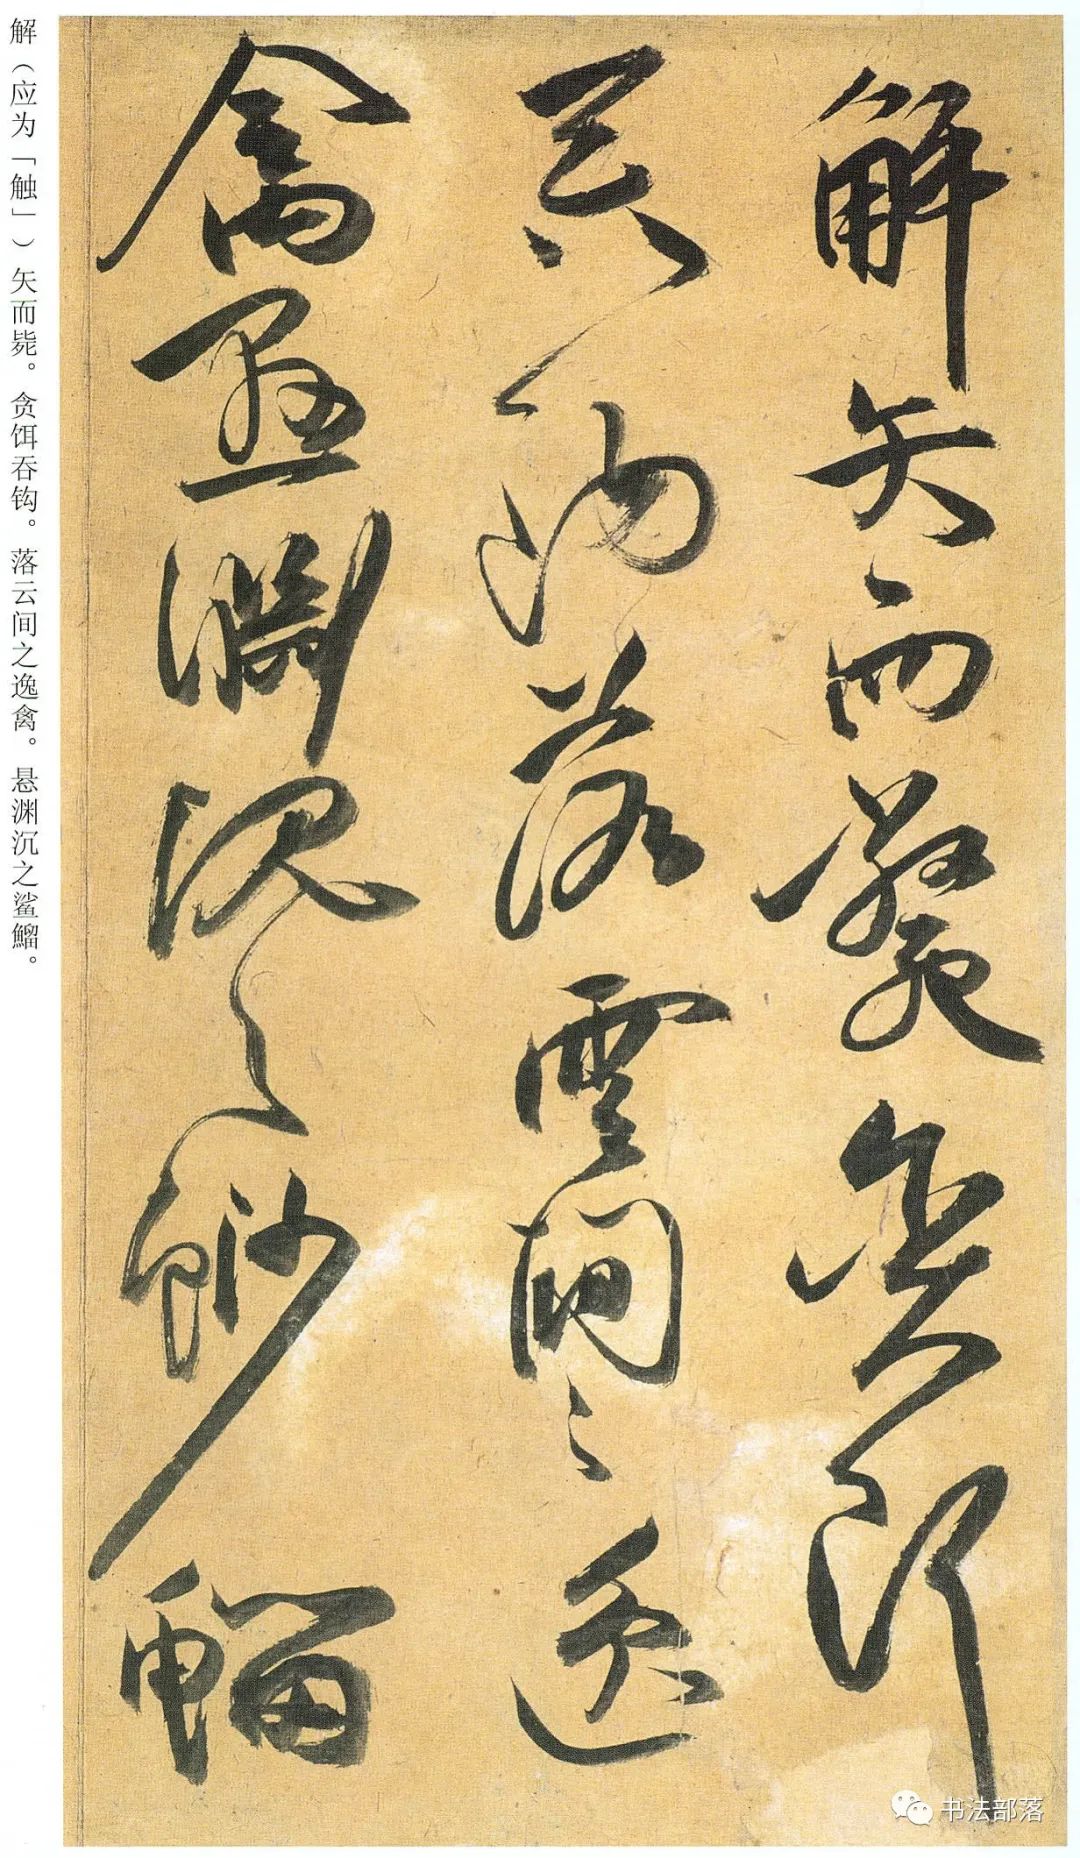 解矢而斃貪餌
吞鉤落雲間之逸
禽懸淵沉之魦鰡
解（应为「触」）矢而毙。贪饵吞钩。落云间之逸禽。悬渊沉之鲨鰡。
书法部落